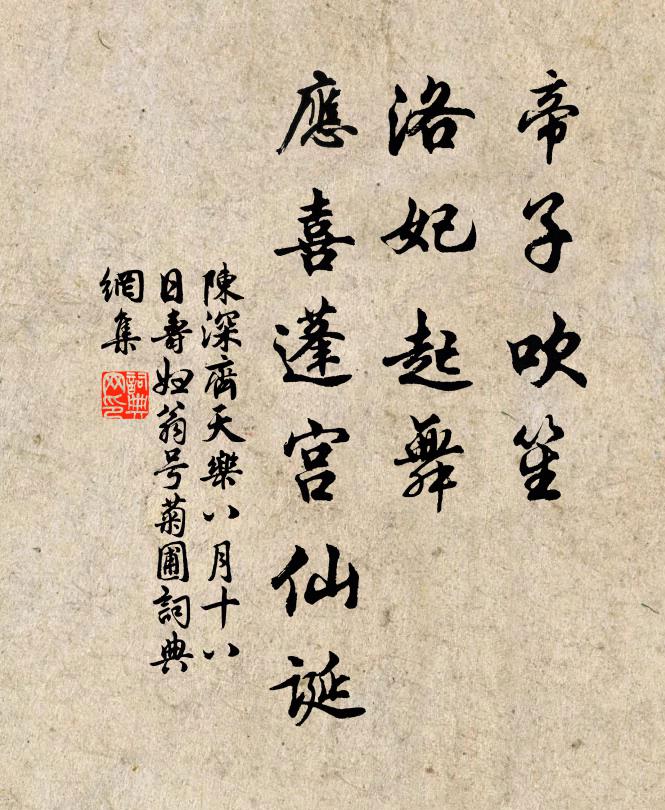 帝子吹笙
洛妃起舞
應喜蓬宫仙誕
陳深齊天樂八月十八
日壽妇翁号菊圃詞典
網集
詞典網印